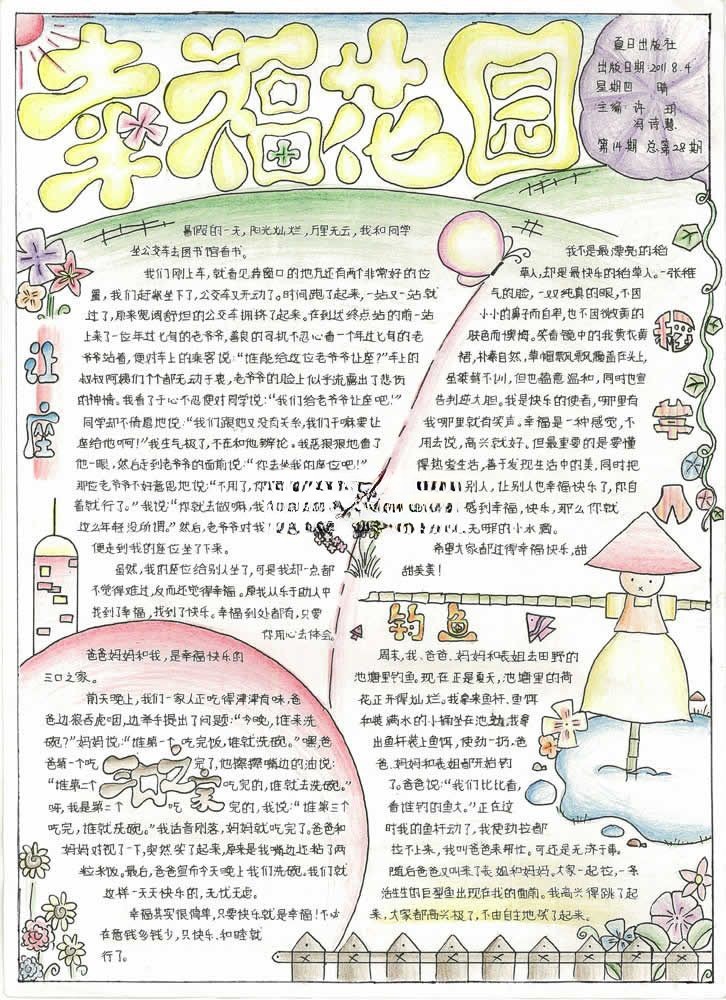 幸福花园
夏日出版社
出版日期:2011.8.4
星期四 晴
主编:许玥
冯诗慧
第14期 总第28期
让座
暑假的一天,阳光灿烂,万里无云,我和同学
坐公交车去图书馆看书。
我们刚上车,就看见靠窗口的地方还有两个非常好的位
置,我们赶紧坐下了,公交车又开动了。时间跑了起来,一站又一站就
过了,原来宽阔舒坦的公交车拥挤了起来。在到达终点站的前一站
上来了一位年过七旬的老爷爷,善良的司机不忍心看一个年过七旬的老
爷爷站着,便对车上的乘客说:“谁能给这位老爷爷让座?”车上的
叔叔阿姨们个个都无动于衷,老爷爷的脸上似乎流露出了悲伤
的神情。我看了于心不忍便对同学说:“我们给老爷爷让座吧!”
同学却不情愿地说:“我们跟他又没有关系,我们干嘛要让
座给他呵!”我生气极了,不在和他辩论。我恶狠狠地瞪了
他一眼,然后走到老爷爷的面前说:“你去坐我的座位吧!”
那位老爷爷不好意思地说:“不用了,你
着就行了。”我说:“你就去做嘛,我
这么年轻没所谓。”然后,老爷爷对我
便走到我的座位坐了下来。
虽然,我的座位给别人坐了,可是我却一点都
不觉得难过,反而还觉得幸福。原我从乐于助人中
找到了幸福,找到了快乐。幸福到处都有,只要
你用心去体会。
稻草人
我不是最漂亮的稻
草人,却是最快乐的稻草人。一张稚
气的脸,一双纯真的眼,不因
小小的鼻子而自卑,也不因微黄的
肤色而懊悔。笑看镜中的我黄衣黄
裙,朴素自然,草帽飘飘飘盖在头上,
虽桀骜不训,但也福意温和,同时也宣
告判逆大胆。我是快乐的使者,哪里有
我哪里就有笑声。幸福是一种感觉,不
用去说,高兴就好。但最重要的是要懂
得热爱生活,善于发现生活中的美,同时把
别人,让别人也幸福快乐了,你自
感到幸福,快乐,那么你就
无邪的小水滴。
希望大家都过得幸福快乐,甜
甜美美!
三口之家
爸爸妈妈和我,是幸福快乐的
三口之家。
前天晚上,我们一家人正吃得津津有味,爸
爸边狼吞虎咽,边举手提出了问题:“今晚,谁来洗
碗?”妈妈说:“谁第一个吃完饭,谁就洗碗。”嘿,爸
爸第一个吃完了,他擦擦嘴边的油说:
“谁第二个吃完的,谁就去洗碗。”
呀,我是第二个吃完的,我说:“谁第三个
吃完,谁就洗碗。”我话音刚落,妈妈就吃完了。爸爸和
妈妈对视了一下,突然笑了起来,原来是我嘴边还粘了两
粒米饭。最后,爸爸宣布今天晚上我们洗碗。我们就
这样一天天快乐的,无忧无虑。
幸福其实很简单,只要快乐就是幸福!不必
在意钱多钱少,只快乐、和睦就
行了。
钓鱼
周末,我、爸爸、妈妈和表姐去田野的
池塘里钓鱼。现在正是夏天,池塘里的荷
花正开得灿烂。我拿来鱼杆、鱼饵
和装满水的小桶坐在池边,我拿
出鱼杆装上鱼饵,使劲一扔。爸
爸、妈妈和表姐都开始钓
了。爸爸说:“我们比比看,
看谁钓的鱼大。”正在这
时我的鱼杆动了,我使劲拉都
拉不上来,我叫爸爸来帮忙。可还是无济于事。
随后爸爸又叫来了表姐和妈妈。大家一起拉,一条
活生生的巨型鱼出现在我的面前。我高兴得跳了起
来,大家都高兴极了,不由自主地笑了起来。